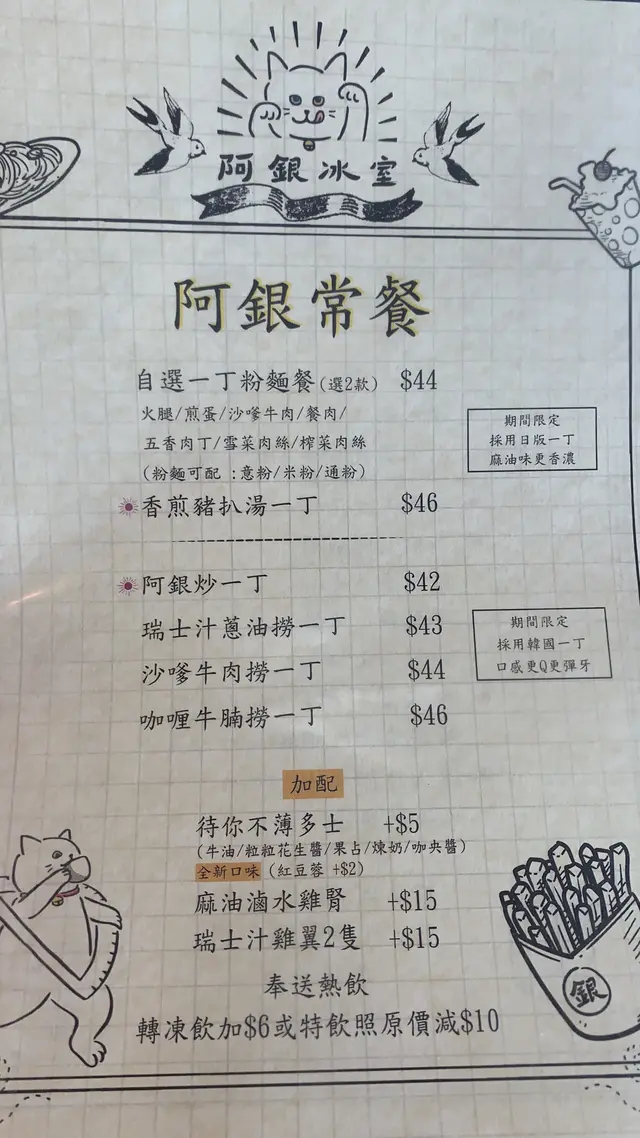 阿銀冰室
阿銀常餐
自選一丁粉麵餐(選2款) $44
火腿/煎蛋/沙嗲牛肉/餐肉/
五香肉丁/雪菜肉絲/榨菜肉絲
(粉麵可配:意粉/米粉/通粉)
期間限定
採用日版一丁
麻油味更香濃
香煎豬扒湯一丁 $46
阿銀炒一丁 $42
瑞士汁蔥油撈一丁 $43
沙嗲牛肉撈一丁 $44
咖喱牛腩撈一丁 $46
期間限定
採用韓國一丁
口感更Q更彈牙
加配
待你不薄多士 +$5
(牛油/粒粒花生醬/果占/煉奶/咖央醬)
全新口味(紅豆蓉 +$2)
麻油滷水雞腎 +$15
瑞士汁雞翼2隻 +$15
奉送熱飲
轉凍飲加$6或特飲照原價減$10
銀